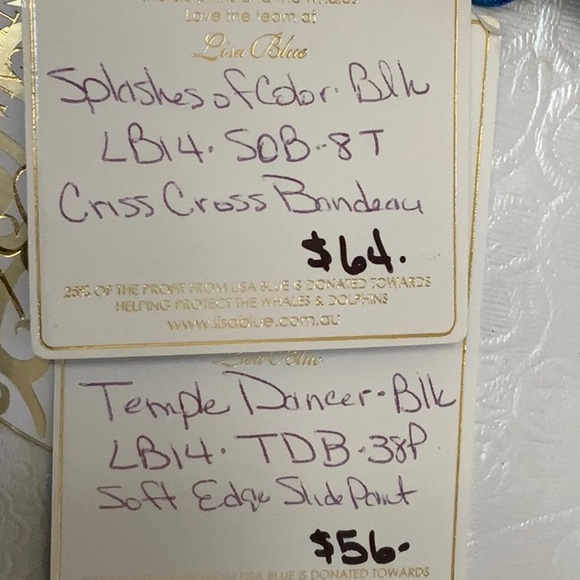 Love the team at
Lisa Blue
Splashes of Color. Blk
LB14. SOB-8T
Criss Cross Bandeau
$64.
25% OF THE PROFIT FROM LISA BLUE IS DONATED TOWARDS
HELPING PROTECT THE WHALES & DOLPHINS
www.lisablue.com.au
Lisa Blue
Temple Dancer-Blk
LB14. TDB-38P
Soft Edge Slide Pant
$56-
FROM LISA BLUE IS DONATED TOWARDS